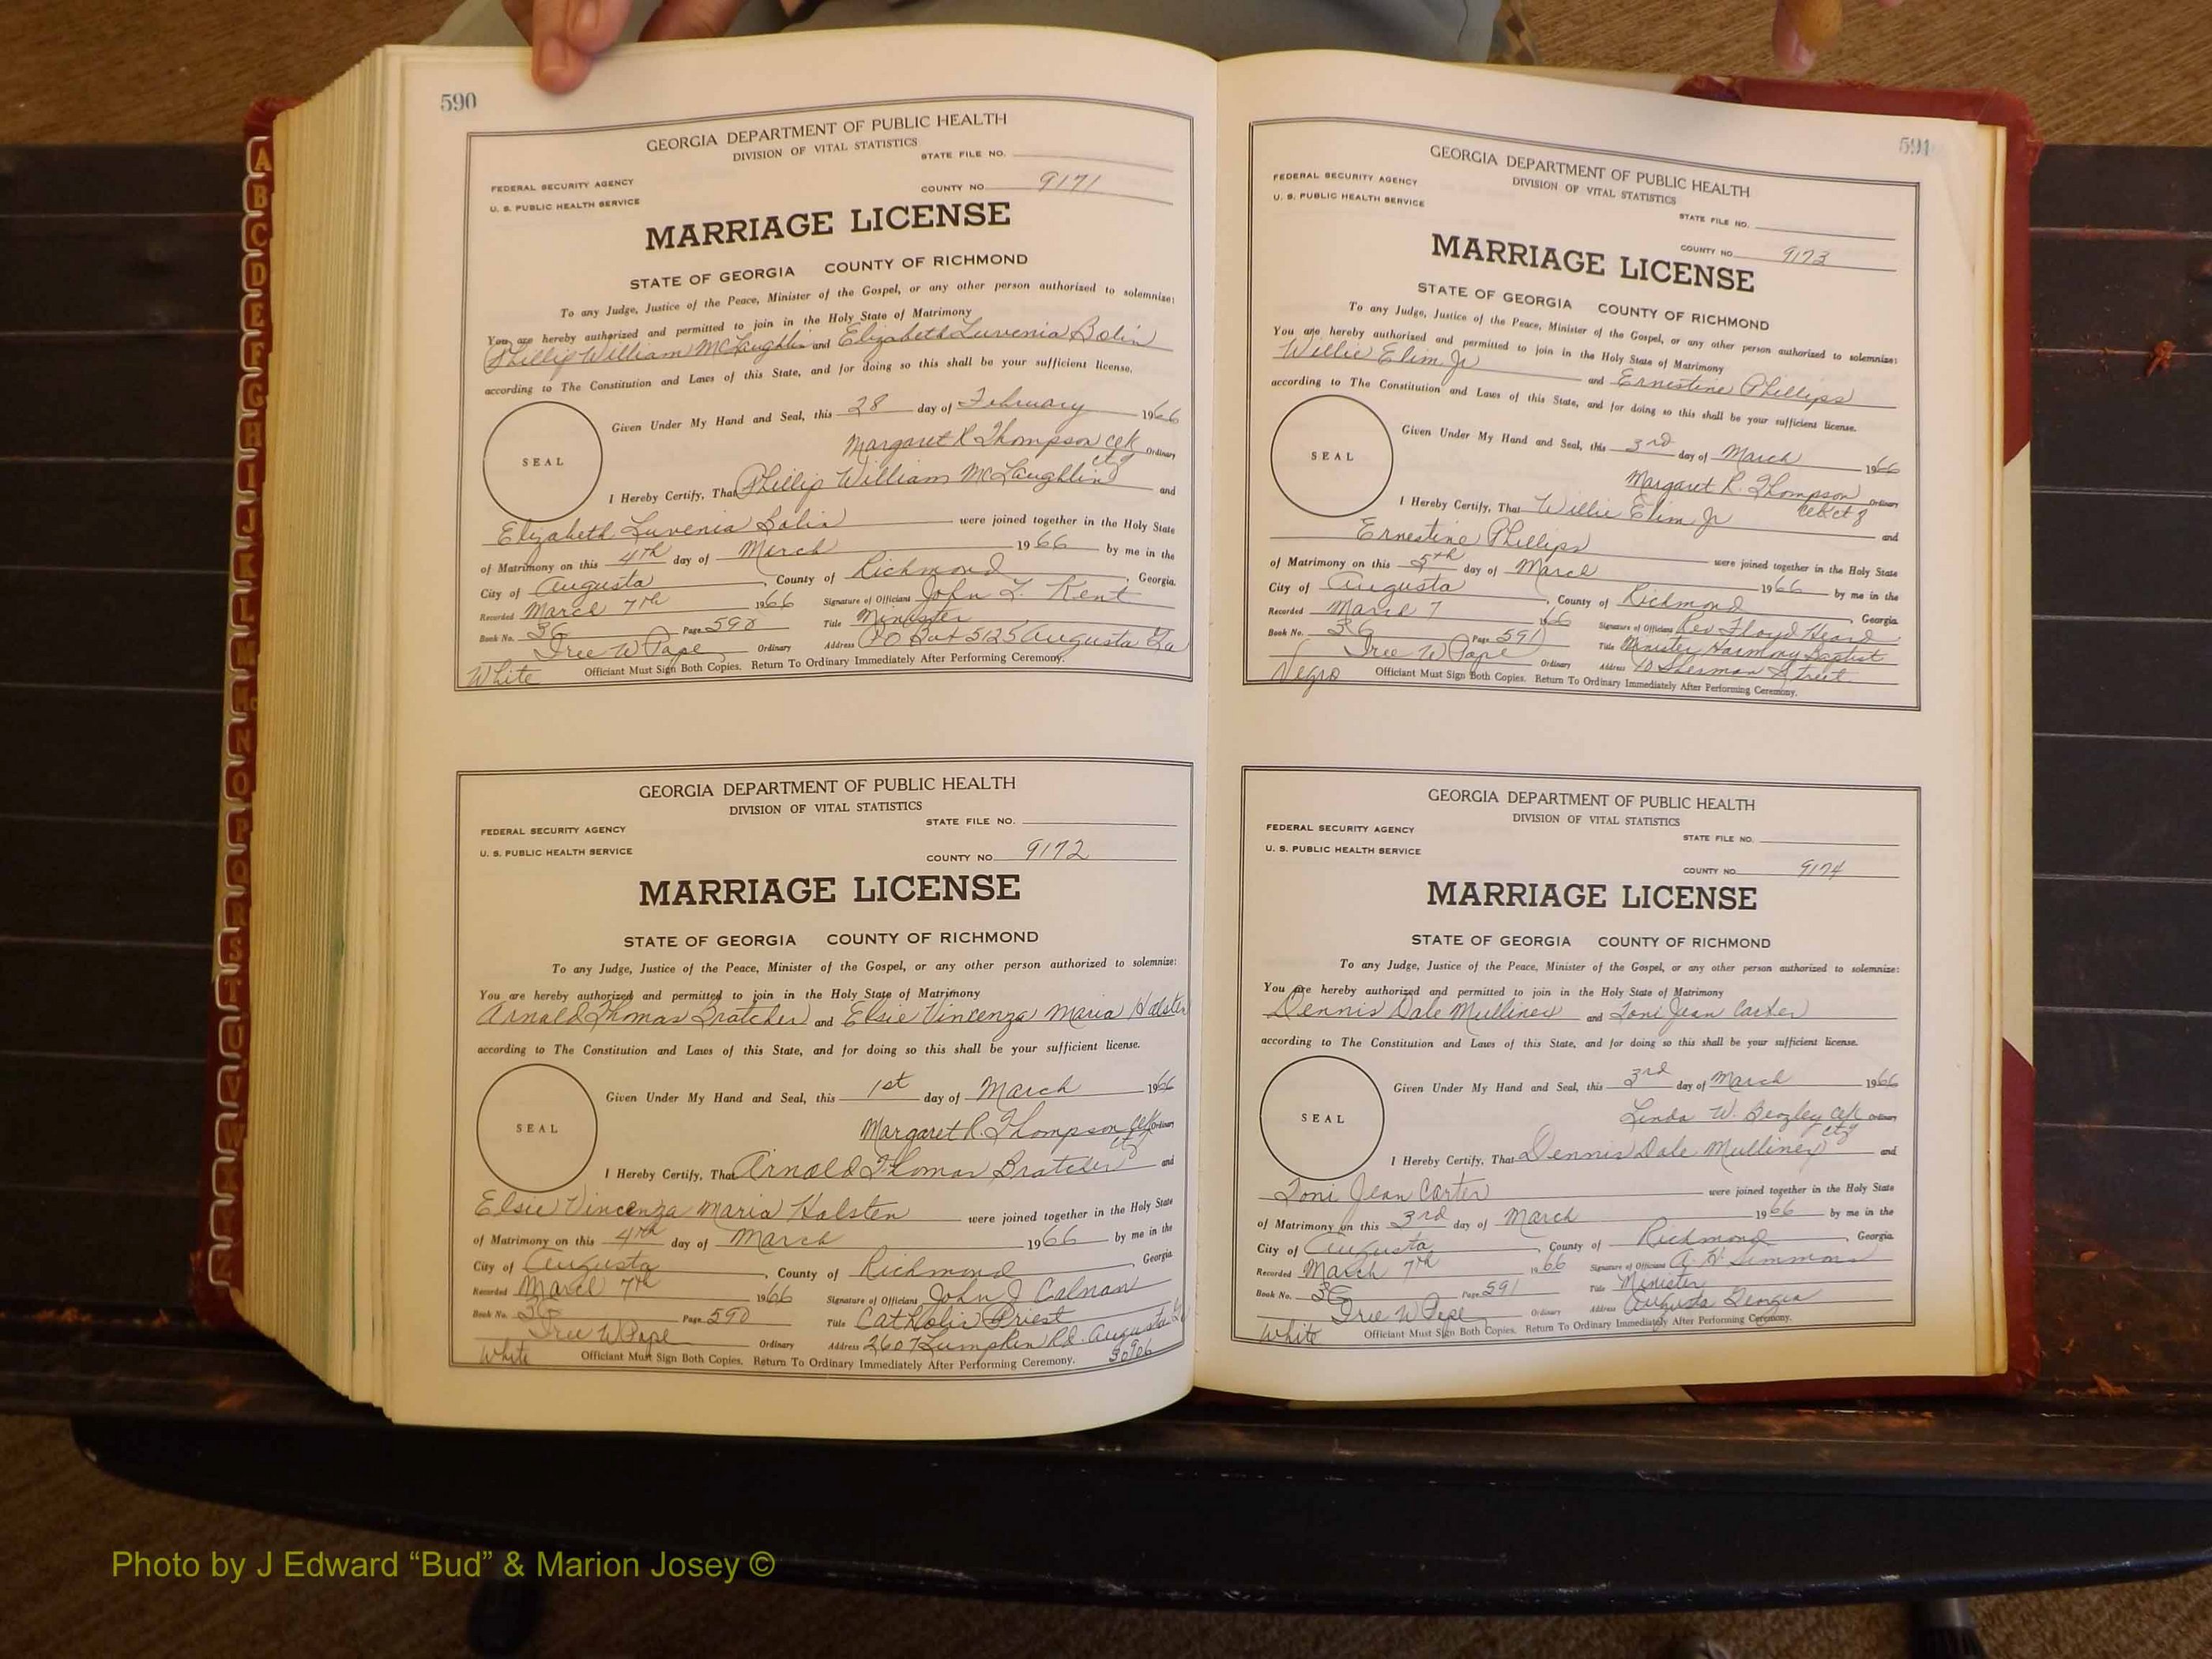 590
GEORGIA DEPARTMENT OF PUBLIC HEALTH
DIVISION OF VITAL STATISTICS
STATE FILE NO.
FEDERAL SECURITY AGENCY
COUNTY NO. 9171
U. S. PUBLIC HEALTH SERVICE
MARRIAGE LICENSE
STATE OF GEORGIA COUNTY OF RICHMOND
To any Judge, Justice of the Peace, Minister of the Gospel, or any other person authorized to solemnize:
You are hereby authorized and permitted to join in the Holy State of Matrimony
Phillip William McLaughlin and Elizabeth Luvenia Bolin
according to The Constitution and Laws of this State, and for doing so this shall be your sufficient license.
Given Under My Hand and Seal, this 28 day of February 1966
Margaret R. Thompson Clk Ordinary
ctg
SEAL
I Hereby Certify, That Phillip William McLaughlin and
Elizabeth Luvenia Bolin were joined together in the Holy State
of Matrimony on this 4th day of March 1966 by me in the
City of Augusta, County of Richmond, Georgia.
Recorded March 7th 1966 Signature of Officiant John L. Kent
Book No. 3G Page 590 Title Minister
Iree W Pope Ordinary Address PO Box 5125 Augusta Ga
White Officiant Must Sign Both Copies. Return To Ordinary Immediately After Performing Ceremony.
GEORGIA DEPARTMENT OF PUBLIC HEALTH
DIVISION OF VITAL STATISTICS
STATE FILE NO.
FEDERAL SECURITY AGENCY
U. S. PUBLIC HEALTH SERVICE
COUNTY NO. 9172
MARRIAGE LICENSE
STATE OF GEORGIA COUNTY OF RICHMOND
To any Judge, Justice of the Peace, Minister of the Gospel, or any other person authorized to solemnize:
You are hereby authorized and permitted to join in the Holy State of Matrimony
Arnold Thomas Bratcher and Elsie Vincenza Maria Halsten
according to The Constitution and Laws of this State, and for doing so this shall be your sufficient license.
Given Under My Hand and Seal, this 1st day of March 1966
Margaret R. Thompson Clk Ordinary
ctg
SEAL
I Hereby Certify, That Arnold Thomas Bratcher and
Elsie Vincenza Maria Halsten were joined together in the Holy State
of Matrimony on this 4th day of March 1966 by me in the
City of Augusta, County of Richmond, Georgia
Recorded March 7th 1966 Signature of Officiant John J Calnan
Book No. 3G Page 590 Title Catholic Priest
Iree W Pope Ordinary Address 2607 Lumpkin Rd. Augusta Ga
30906
White Officiant Must Sign Both Copies. Return To Ordinary Immediately After Performing Ceremony.
591
GEORGIA DEPARTMENT OF PUBLIC HEALTH
DIVISION OF VITAL STATISTICS
FEDERAL SECURITY AGENCY
U. S. PUBLIC HEALTH SERVICE
STATE FILE NO.
COUNTY NO. 9173
MARRIAGE LICENSE
STATE OF GEORGIA COUNTY OF RICHMOND
To any Judge, Justice of the Peace, Minister of the Gospel, or any other person authorized to solemnize:
You are hereby authorized and permitted to join in the Holy State of Matrimony
Willie Elim Jr and Ernestine Phillips
according to The Constitution and Laws of this State, and for doing so this shall be your sufficient license.
Given Under My Hand and Seal, this 3rd day of March 1966
Margaret R. Thompson Ordinary
Clk ctg
SEAL
I Hereby Certify, That Willie Elim Jr and
Ernestine Phillips were joined together in the Holy State
of Matrimony on this 5th day of March 1966 by me in the
City of Augusta, County of Richmond, Georgia
Recorded March 7 1966 Signature of Officiant Rev Floyd Heard
Book No. 3G Page 591 Title Minister Harmony Baptist
Iree W Pope Ordinary Address 10 Sherman Street
Negro Officiant Must Sign Both Copies. Return To Ordinary Immediately After Performing Ceremony.
GEORGIA DEPARTMENT OF PUBLIC HEALTH
DIVISION OF VITAL STATISTICS
FEDERAL SECURITY AGENCY
STATE FILE NO.
U. S. PUBLIC HEALTH SERVICE
COUNTY NO. 9174
MARRIAGE LICENSE
STATE OF GEORGIA COUNTY OF RICHMOND
To any Judge, Justice of the Peace, Minister of the Gospel, or any other person authorized to solemnize:
You are hereby authorized and permitted to join in the Holy State of Matrimony
Dennis Dale Mullinex and Toni Jean Carter
according to The Constitution and Laws of this State, and for doing so this shall be your sufficient license.
Given Under My Hand and Seal, this 3rd day of March 1966
Linda W. Beazley Clk Ordinary
ctg
SEAL
I Hereby Certify, That Dennis Dale Mullinex and
Toni Jean Carter were joined together in the Holy State
of Matrimony on this 3rd day of March 1966 by me in the
City of Augusta, County of Richmond, Georgia
Recorded March 7th 1966 Signature of Officiant A. W. Simmons
Book No. 3G Page 591 Title Minister
Iree W Pope Ordinary Address Augusta Georgia
White Officiant Must Sign Both Copies. Return To Ordinary Immediately After Performing Ceremony.
A
B
C
D
E
F
G
H
I
J
K
L
M
Mc
N
O
P
Q
R
S
T
U
V
W
X
Y
Z
Photo by J Edward “Bud” & Marion Josey ©